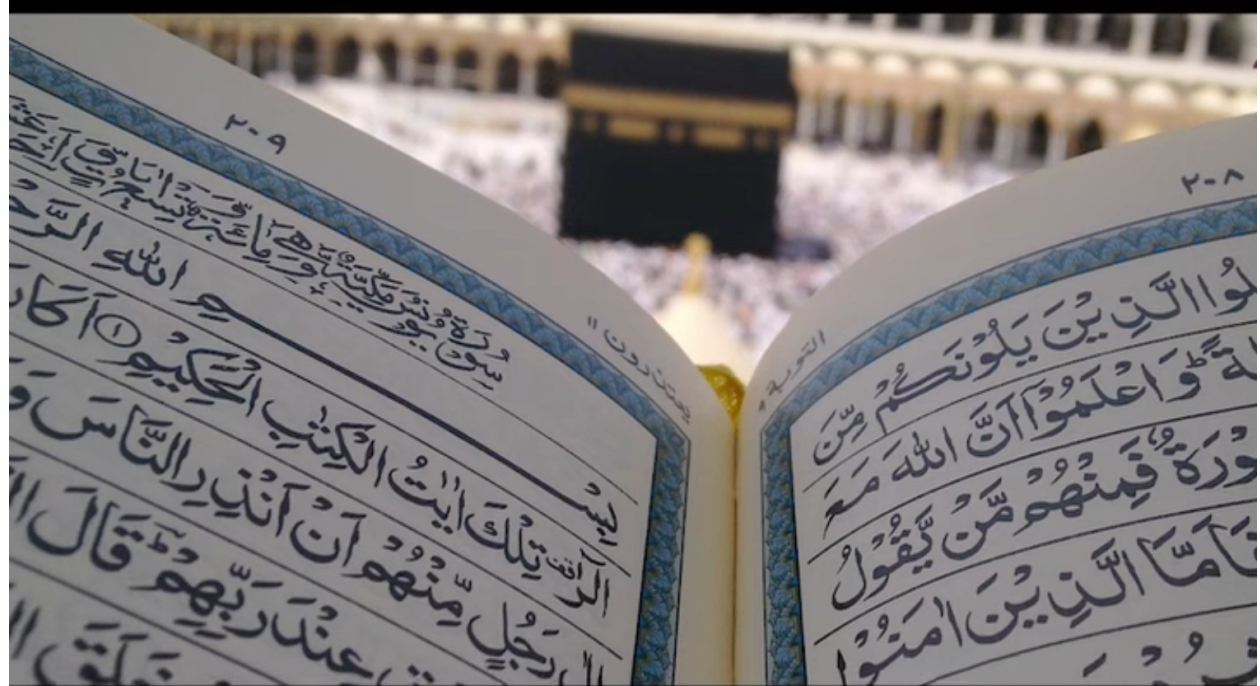 ٢٠٨
التوبة ٩
لُوا الَّذِيْنَ يَلُوْنَكُمْ مِّنَ
ةً ؕ وَاعْلَمُوْۤا اَنَّ اللّٰهَ مَعَ
وْرَةٌ فَمِنْهُمْ مَّنْ يَّقُوْلُ
فَاَمَّا الَّذِيْنَ اٰمَنُوْا
٢٠٩
يعتذرون ١١
سُوْرَةُ يُوْنُسَ مَكِّيَّةٌ وَّهِيَ مِائَةٌ وَّتِسْعُ اٰيَاتٍ
بِسْمِ اللهِ الرَّحْ
الٓرٰ تِلْكَ اٰيٰتُ الْكِتٰبِ الْحَكِيْمِ ١ اَكَانَ
رَجُلٍ مِّنْهُمْ اَنْ اَنْذِرِ النَّاسَ وَ
عِنْدَ رَبِّهِمْ قَالَ
خَلَقَ